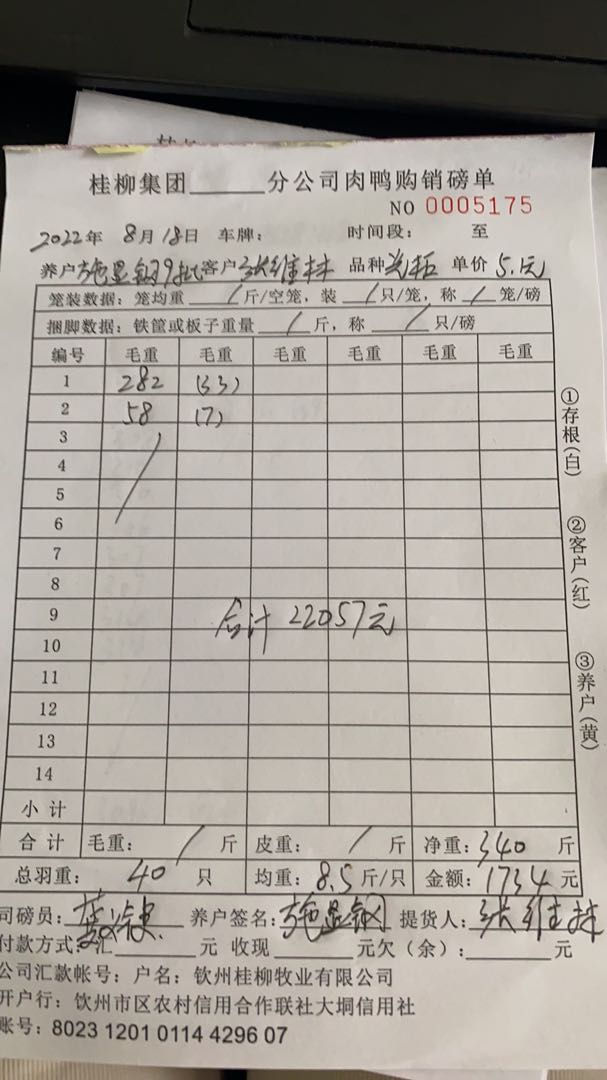 桂柳集团______分公司肉鸭购销磅单
NO 0005175
2022年 8月18日 车牌： 时间段： 至
养户 施显钢9批 客户 张维林 品种 单价 5.1元
笼装数据：笼均重 / 斤/空笼，装 / 只/笼，称 / 笼/磅
捆脚数据：铁筐或板子重量 / 斤，称 / 只/磅
编号 毛重 毛重 毛重 毛重 毛重 毛重
1 282 (33)
2 58 (7)
3
4
5
6
7
8
9 合计 22057元
10
11
12
13
14
小计
合计 毛重： / 斤 皮重： / 斤 净重：340 斤
总羽重： 40 只 均重：8.5 斤/只 金额：1734 元
司磅员： 养户签名：施显钢 提货人：张维林
付款方式：汇______元 收现______元欠（余）：______元
公司汇款帐号：户名：钦州桂柳牧业有限公司
开户行：钦州市区农村信用合作联社大垌信用社
账号：8023 1201 0114 4296 07
①存根(白)
②客户(红)
③养户(黄)